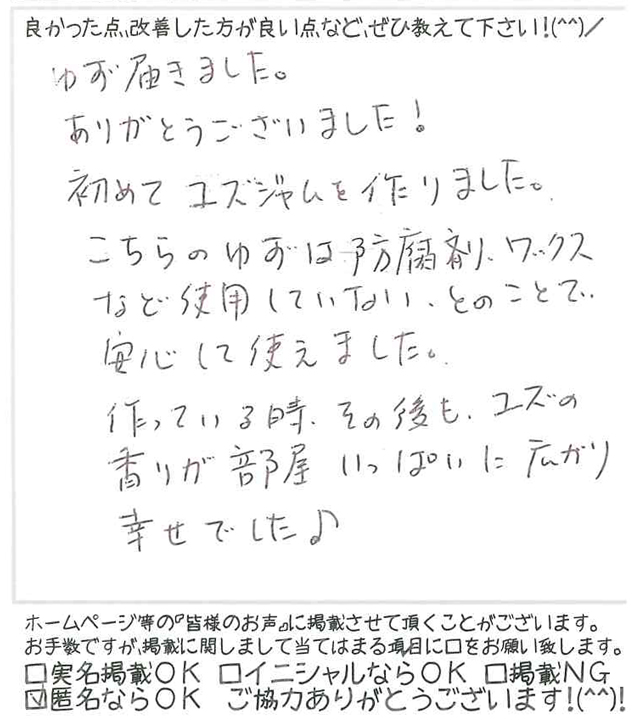 良かった点、改善した方が良い点など、ぜひ教えて下さい!(^^)/
ゆず届きました。
ありがとうございました!
初めて ユズジャムを作りました。
こちらのゆずは防腐剤、ワックス
など使用していない、とのことで、
安心して使えました。
作っている時、その後も、ユズの
香りが部屋いっぱいに広がり
幸せでした♪
ホームページ等の『皆様のお声』に掲載させて頂くことがございます。
お手数ですが、掲載に関しまして当てはまる項目に☐をお願い致します。
☐実名掲載OK ☐イニシャルならOK ☐掲載NG
☑匿名ならOK ご協力ありがとうございます!(^^)!